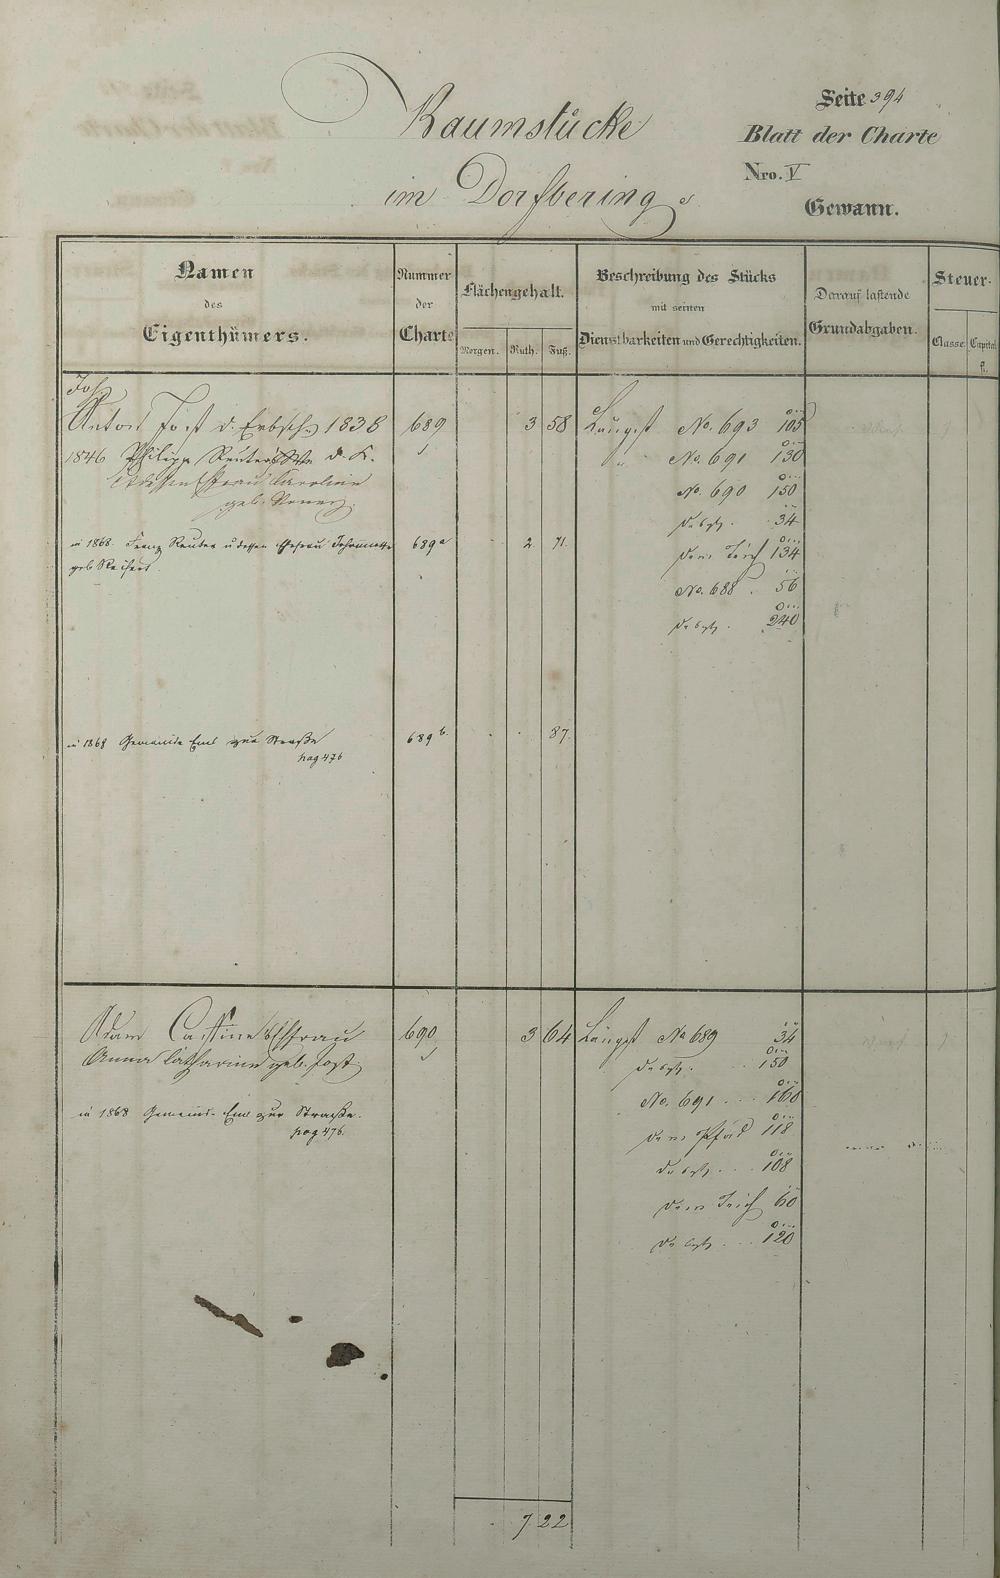 Seite 394
Baumstücke
Blatt der Charte
Nro. V
im Dorfbering
Gewann.
Namen
des
Eigenthümers.
Nummer
der
Charte
Flächengehalt.
Morgen. Ruth. Fuß.
Beschreibung des Stücks
mit seinen
Dienstbarkeiten und Gerechtigkeiten.
Darauf lastende
Grundabgaben.
Steuer-
Classe Capital
fl.
Joh.
Anton Fost d. Erbsch. 1838 689 3 58 Längst No. 693 105
1846 Philipp Reuters We d. K. " No. 691 130
Ehefrau Caroline No. 690 150
geb.
desgl. 34
in 1868. Franz Reuter u dessen Ehefrau Johannette 689a 2. 71. dem Teich 134
geb
No. 688 56
desgl. 240
in 1868 Gemeinde Ems zur Straße 689b. 87.
pag 476
Adam Ehefrau 690 3 64 Längst No 689 34
Anna Catharine geb. Fost desgl. 150
No. 691 160
in 1868 Gemeinde Ems zur Straße.
pag 476.
dem Pfad 118
desgl. 108
dem Teich 60
desgl. 120
7 22